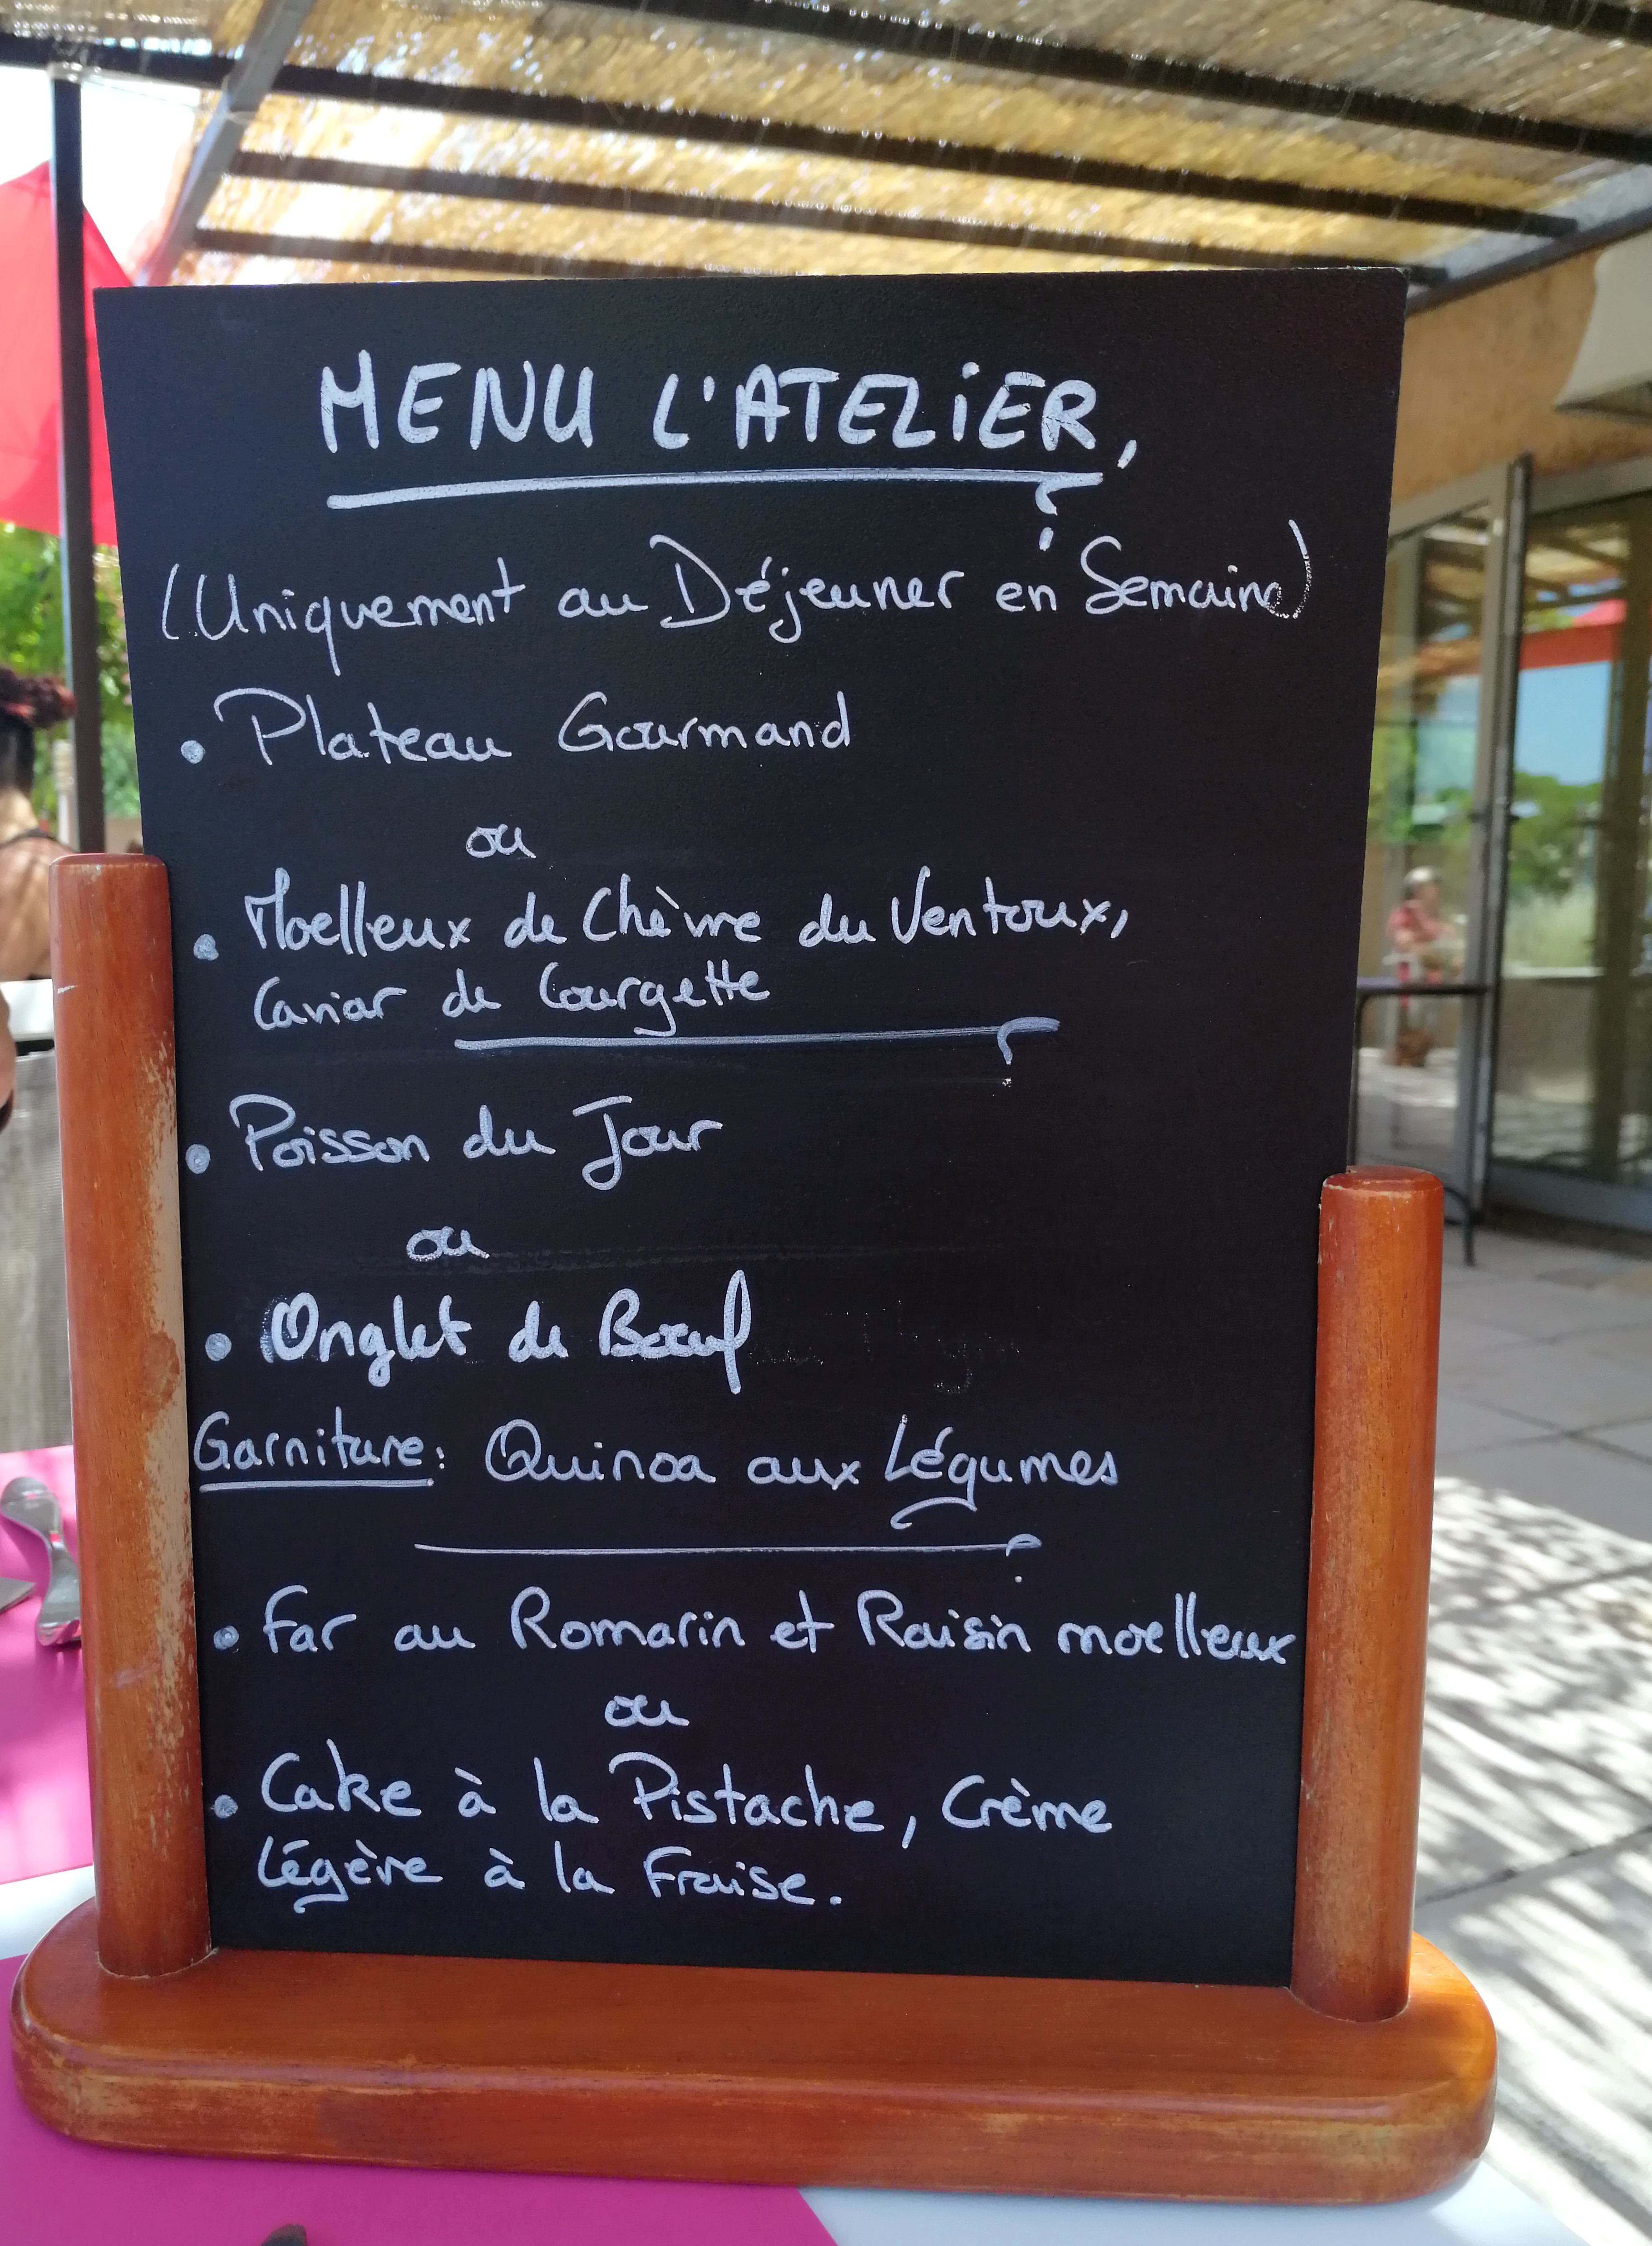 MENU L'ATELIER,
(Uniquement au Déjeuner en Semaine)
• Plateau Gourmand
ou
• Moelleux de Chèvre du Ventoux,
Caviar de Courgette
• Poisson du Jour
ou
• Onglet de Boeuf
Garniture: Quinoa aux Légumes
• Far au Romarin et Raisin moelleux
ou
• Cake à la Pistache, Crème
Légère à la Fraise.